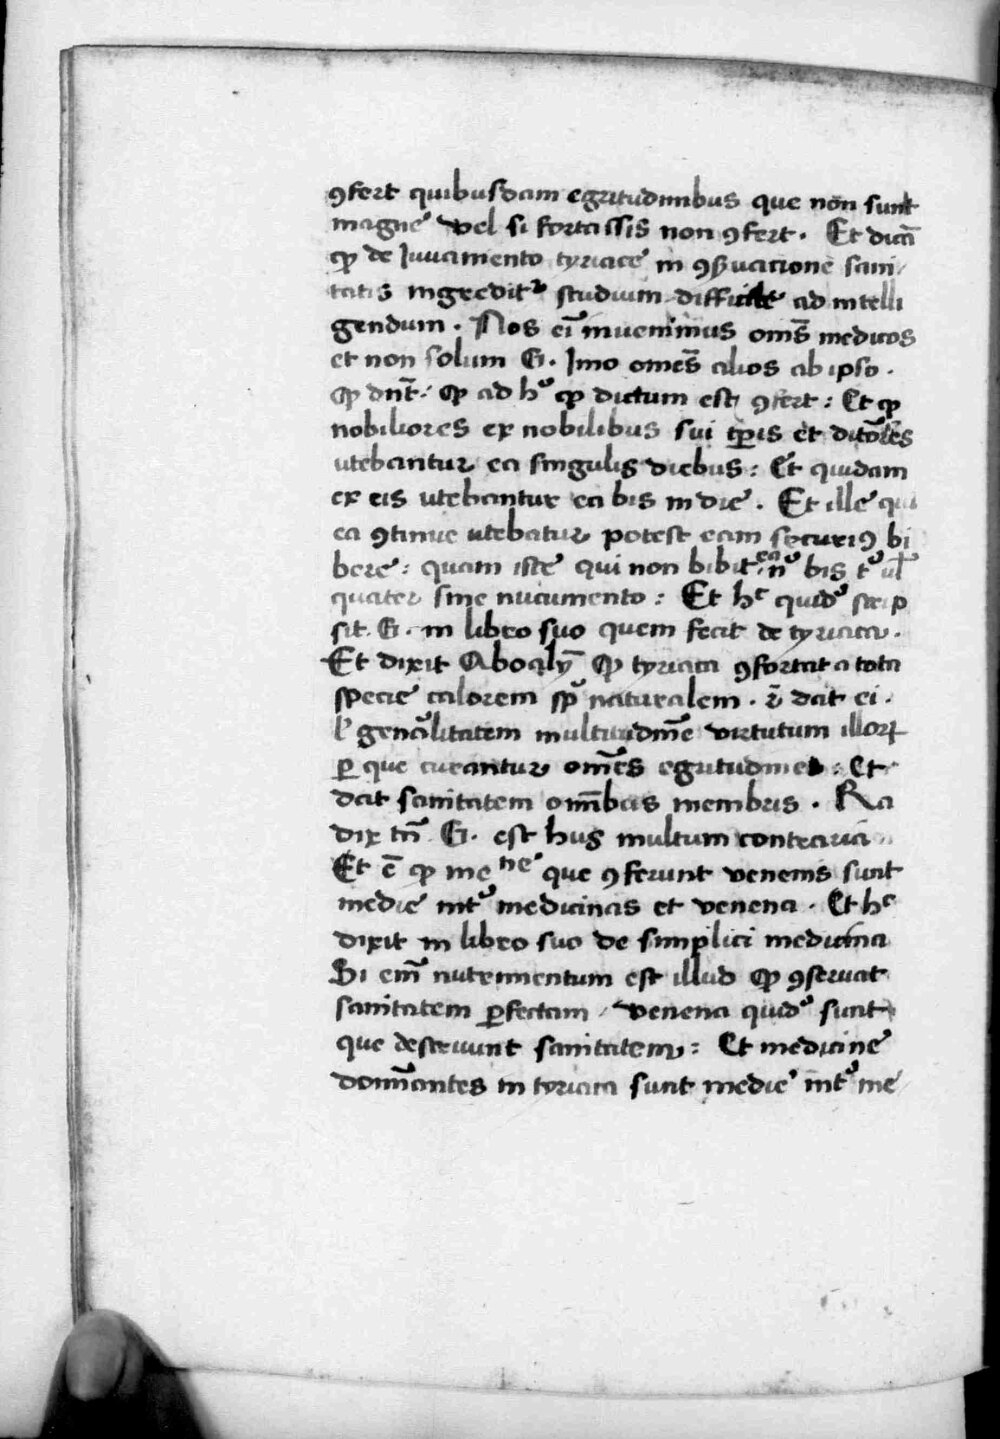 ꝯfert quibusdam egritudinibus que non sunt
magne vel si fortassis non ꝯfert. Et dicā
ꝙ de Iuvamento tyriace in ꝯẞvatione sani
tatis ingredit᷑ studium difficile ad intelli
gendum. Nos ei᷑ invenimus om̄s medicos
et non solum G. Imo om̄es alios ab ipso.
ꝙ dn̄t: ꝙ ad hͦ ꝙ dictum est ꝯfert: Et ꝙ
nobiliores ex nobilibus sui tꝑis et ditiores
utebantur ea singulis diebus: Et quidam
ex eis utebantur ea bis in die. Et ille qui
ea ꝯtinue utebatur potest eam securiꝰ bi
bere: quam iste qui non bibit ea nͦ bis tͦ ul̄
quater sine nucumento: Et hͨ quidͦ scrip
sit G. in libro suo quem fecit de tyriaca.
Et dixit Aboaly ꝙ tyriaca ꝯfortat a tota
specie calorem spͦ naturalem. dat ei.
gen̄alitatem multitudīne virtutum illoꝝ
ꝑ que curantur om̄es egritudines: Et
dat sanitatem om̄ibus membris. Ra
dix tn̄ G. est huꝰ multum contraria
Et ē ꝙ mene que ꝯferunt venenis sunt
medie intͦ medicinas et venena. Et hͨ
dixit in libro suo de simplici medicina
Si em̄ nutrimentum est illud ꝙ ꝯservat
sanitatem ꝑfectam / venena quidͦ sunt
que destruunt sanitatem: Et medicine
domīantes in tyriaca sunt medie intͦ me